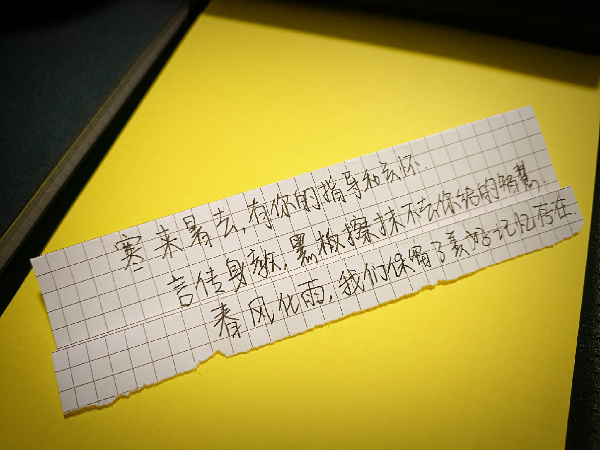 寒来暑去,有你的指导和关怀
言传身教,黑板擦抹不去你给的智慧
春风化雨,我们保留了美好记忆存在